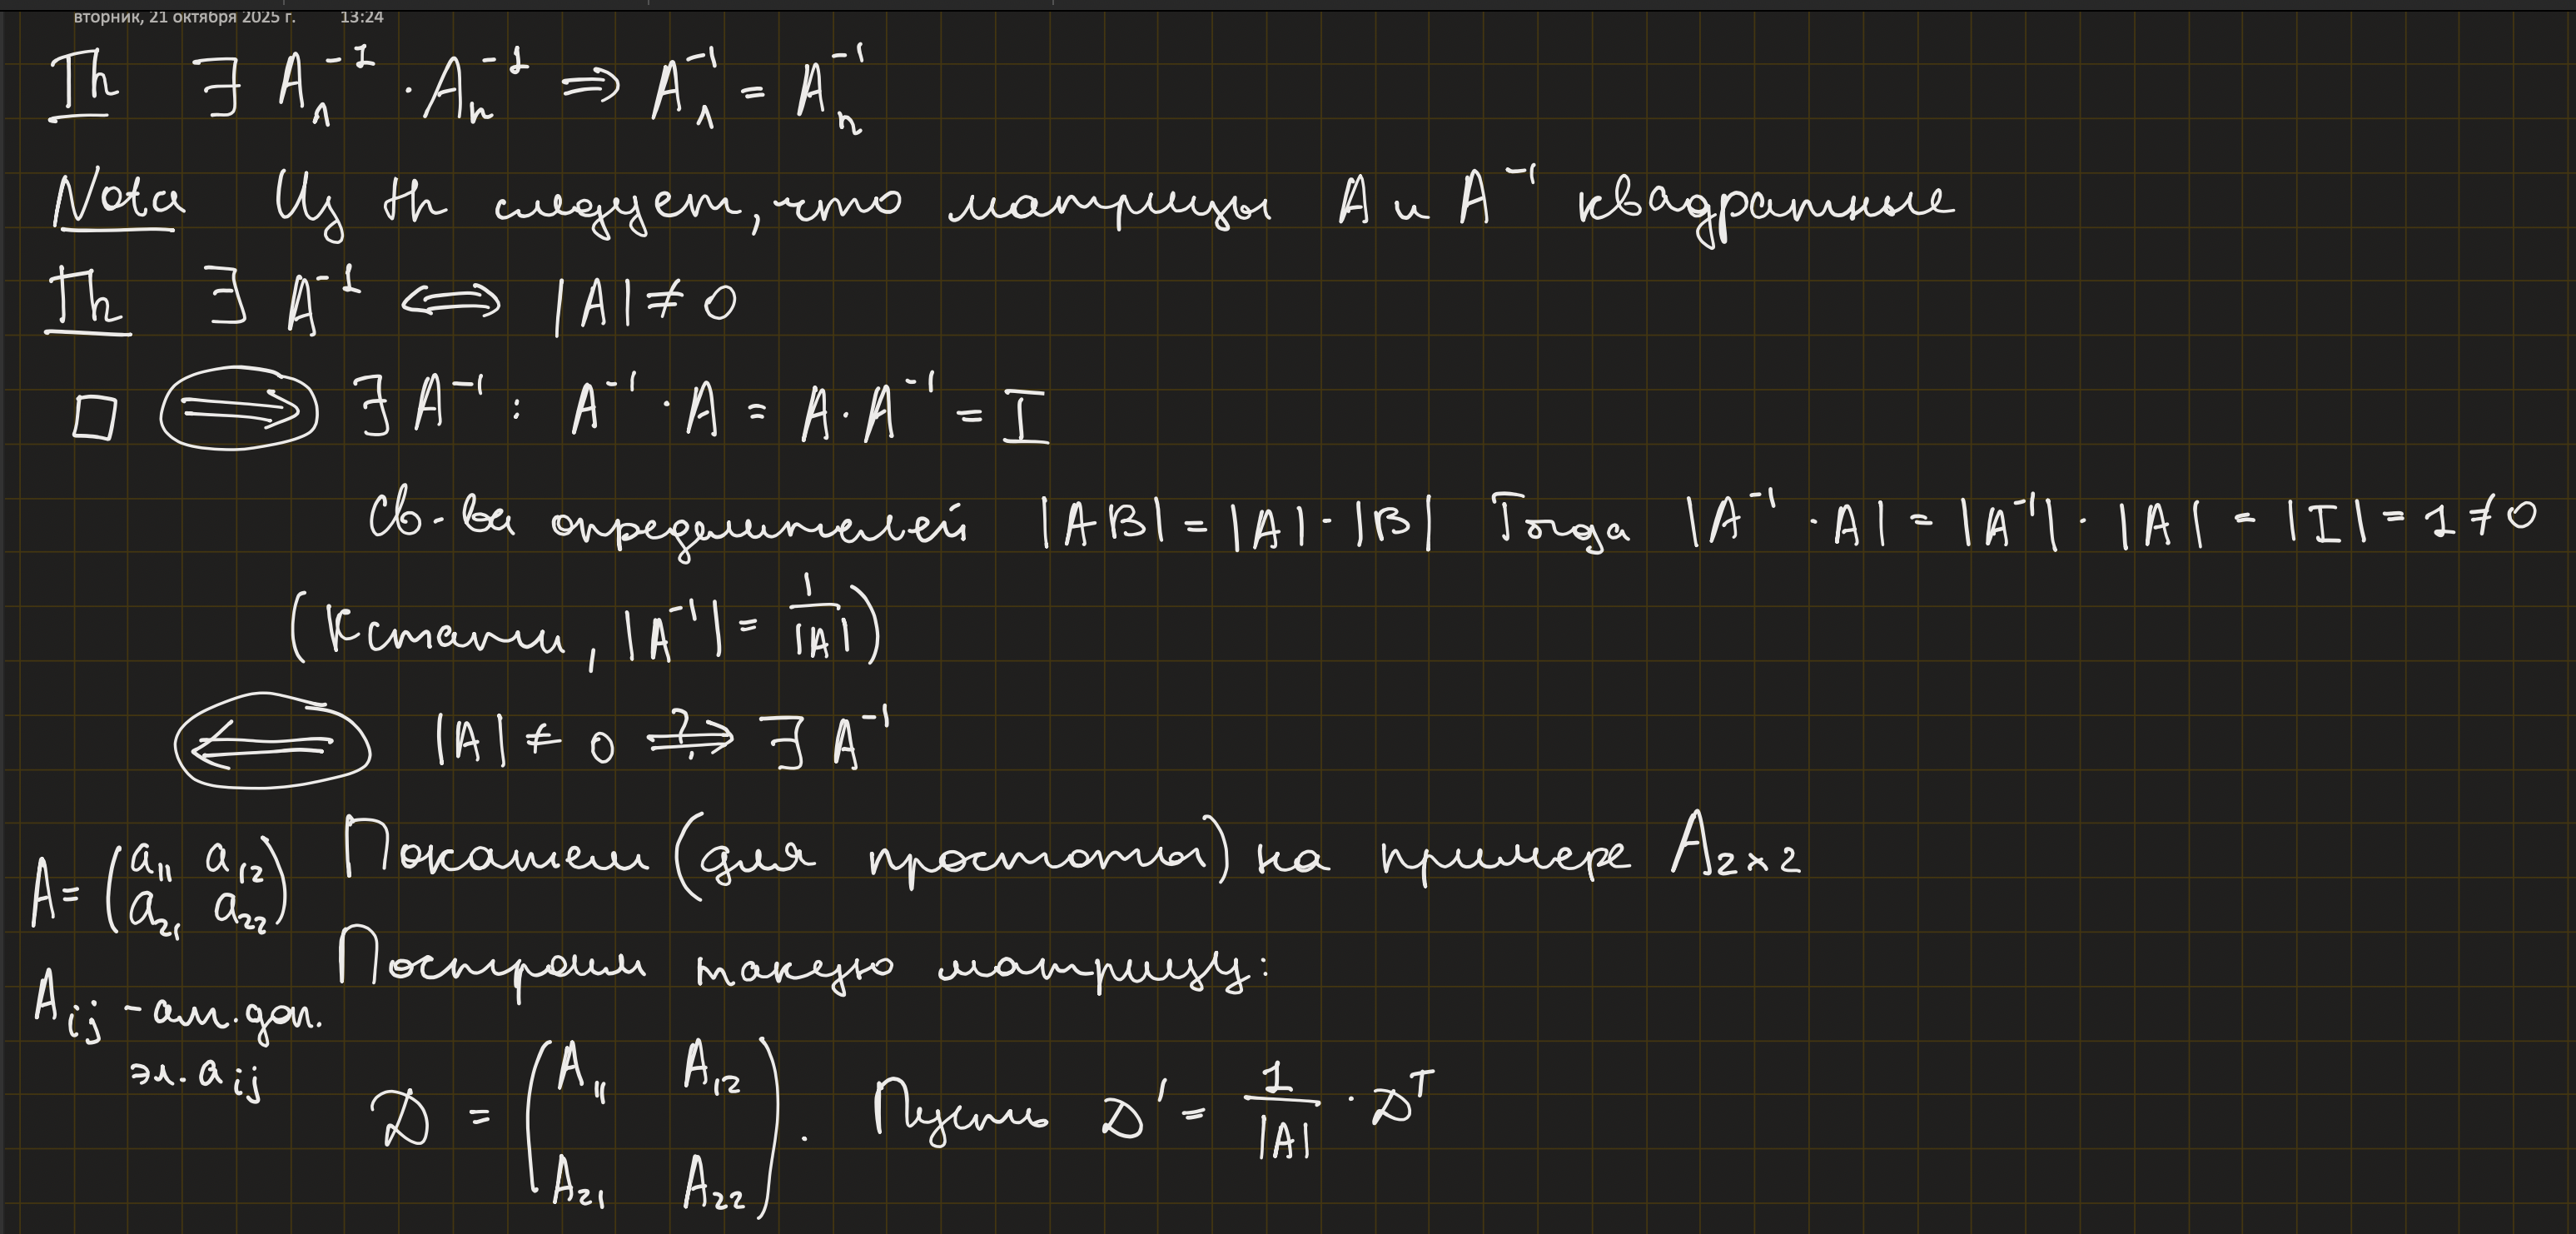 вторник, 21 октября 2025 г. 13:24
Th ∃ Aₗ⁻¹ · Aₙ⁻¹ ⇒ Aₗ⁻¹ = Aₙ⁻¹
Nota Из th следует, что матрицы A и A⁻¹ квадратные
Th ∃ A⁻¹ ⟺ |A| ≠ 0
□ ⟹ ∃ A⁻¹ : A⁻¹ · A = A · A⁻¹ = I
Св-ва определителей |AB| = |A| · |B| Тогда |A⁻¹ · A| = |A⁻¹| · |A| = |I| = 1 ≠ 0
(Кстати, |A⁻¹| = 1/|A|)
⟸ |A| ≠ 0 ⟹? ∃ A⁻¹
Покажем (для простоты) на примере A₂ₓ₂
A = (a₁₁ a₁₂
a₂₁ a₂₂)
Построим такую матрицу:
Aᵢⱼ - ал. доп.
эл. aᵢⱼ
D = (A₁₁ A₁₂
A₂₁ A₂₂). Пусть D' = 1/|A| · Dᵀ